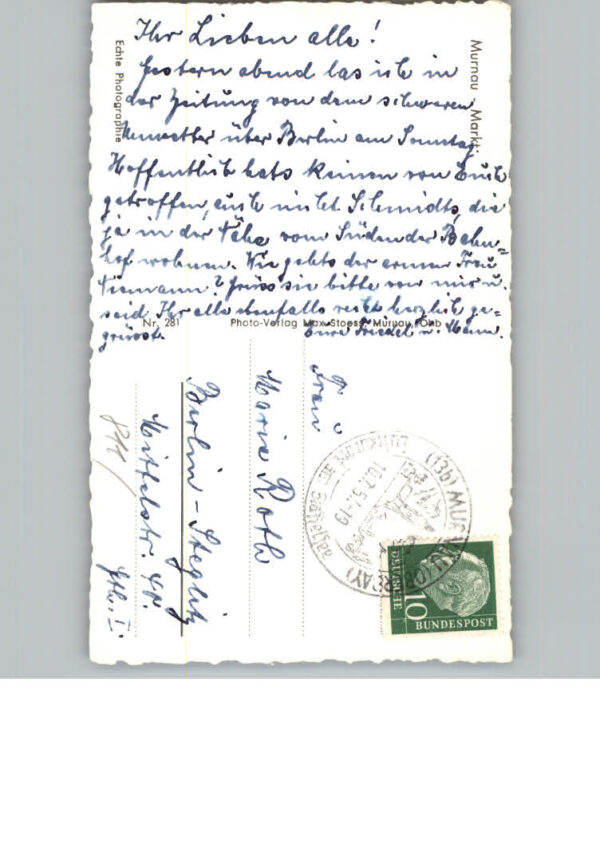 Ihr Lieben alle!
Gestern abend las ich in
der Zeitung von dem schweren
Unwetter über Berlin am Sonntag
Hoffentlich hats keinen von Euch
getroffen, auch nicht Schmidts, die
ja in der Nähe vom Südender Bahn=
hof wohnen. Wie gehts der armen Frau
Tiemann? Grüsst sie bitte von mir u.
seid Ihr alle ebenfalls recht herzlich ge-
grüsst. Eure Friedel u. Mann.
Murnau Markt
Echte Photographie
Nr. 281 Photo-Verlag Max Stoess, Murnau, Obb
Frau
Maria Roth
Berlin-Steglitz
Mittelstr.
Gth. I.
(13b) MURNAU (OBERBAY)
Luftkurort am Staffelsee
10.7.57.-10
DEUTSCHE
BUNDESPOST
10